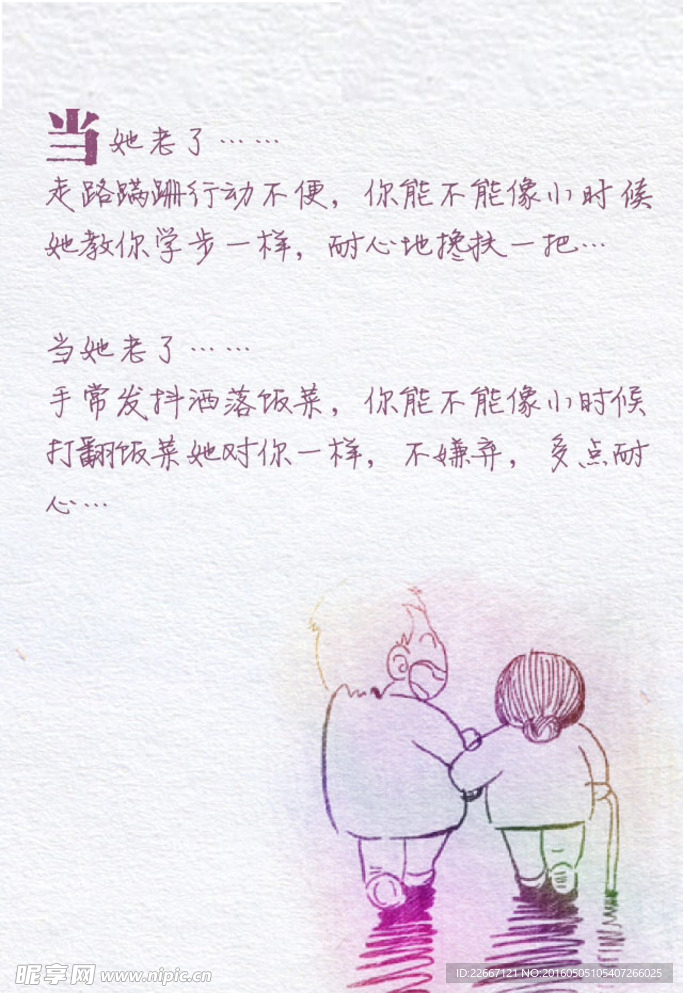 当她老了……
走路蹒跚行动不便，你能不能像小时候
她教你学步一样，耐心地搀扶一把…
当她老了……
手常发抖洒落饭菜，你能不能像小时候
打翻饭菜她对你一样，不嫌弃，多点耐
心…
昵享网 www.nipic.cn
ID:22667121 NO:20160505105407266025